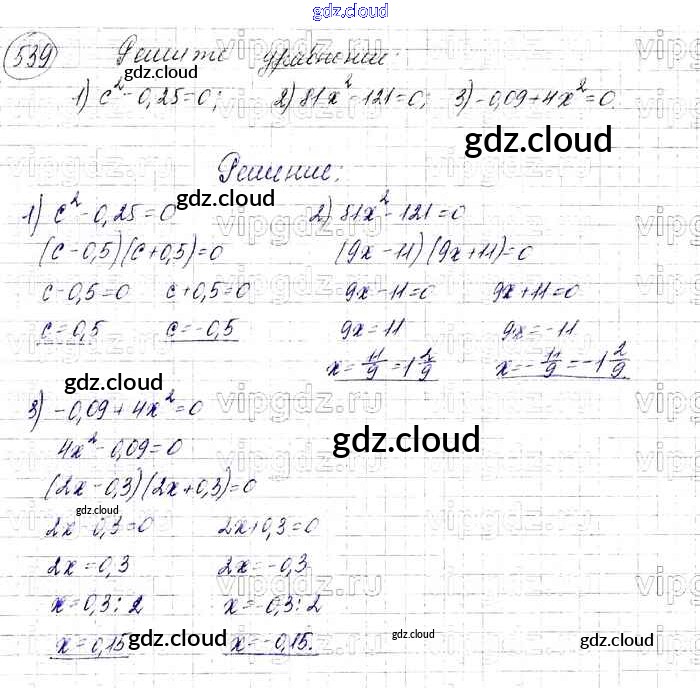 gdz.cloud
539 Решите уравнение:
gdz.cloud
1) c² - 0,25 = 0; 2) 81x² - 121 = 0; 3) -0,09 + 4x² = 0.
gdz.cloud
Решение:
gdz.cloud
1) c² - 0,25 = 0
(c - 0,5)(c + 0,5) = 0
c - 0,5 = 0 c + 0,5 = 0
c = 0,5 c = -0,5
2) 81x² - 121 = 0
(9x - 11)(9x + 11) = 0
9x - 11 = 0 9x + 11 = 0
9x = 11 9x = -11
x = 11/9 = 1 2/9 x = -11/9 = -1 2/9
gdz.cloud
gdz.cloud
3) -0,09 + 4x² = 0
4x² - 0,09 = 0
gdz.cloud
(2x - 0,3)(2x + 0,3) = 0
gdz.cloud
2x - 0,3 = 0 2x + 0,3 = 0
2x = 0,3 2x = -0,3
x = 0,3 : 2 x = -0,3 : 2
x = 0,15 x = -0,15.
gdz.cloud
gdz.cloud
gdz.cloud
vipgdz.ru
vipgdz.ru
vipgdz.ru
vipgdz.ru
vipgdz.ru
vipgdz.ru